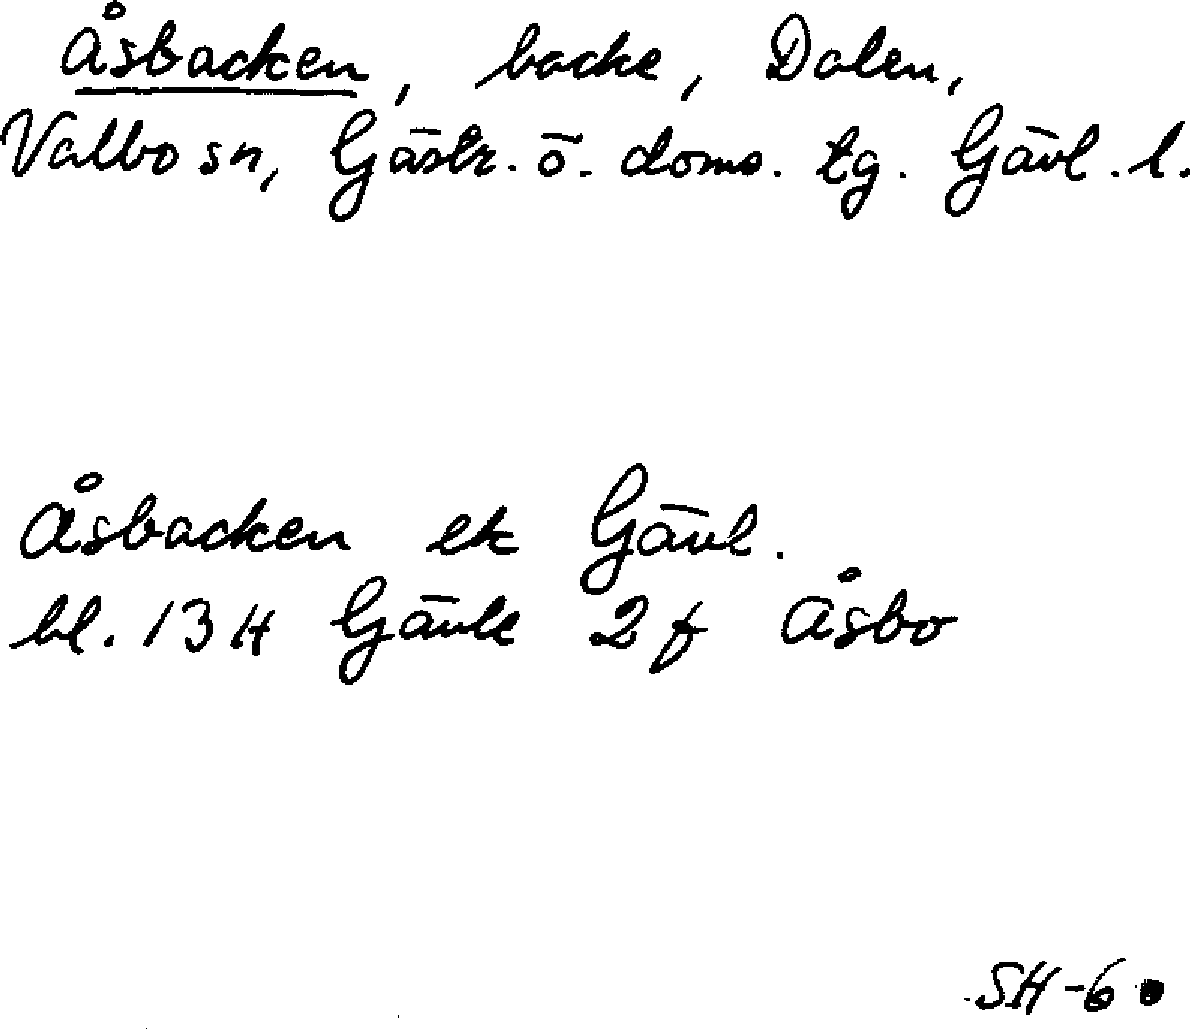 Åsbacken, backe, Dalen,
Valbo sn, Gästr. ö. doms. tg. Gävl. l.
Åsbacken ek Gävl.
bl. 13 H Gävle 2 f Åsbo
SH-60